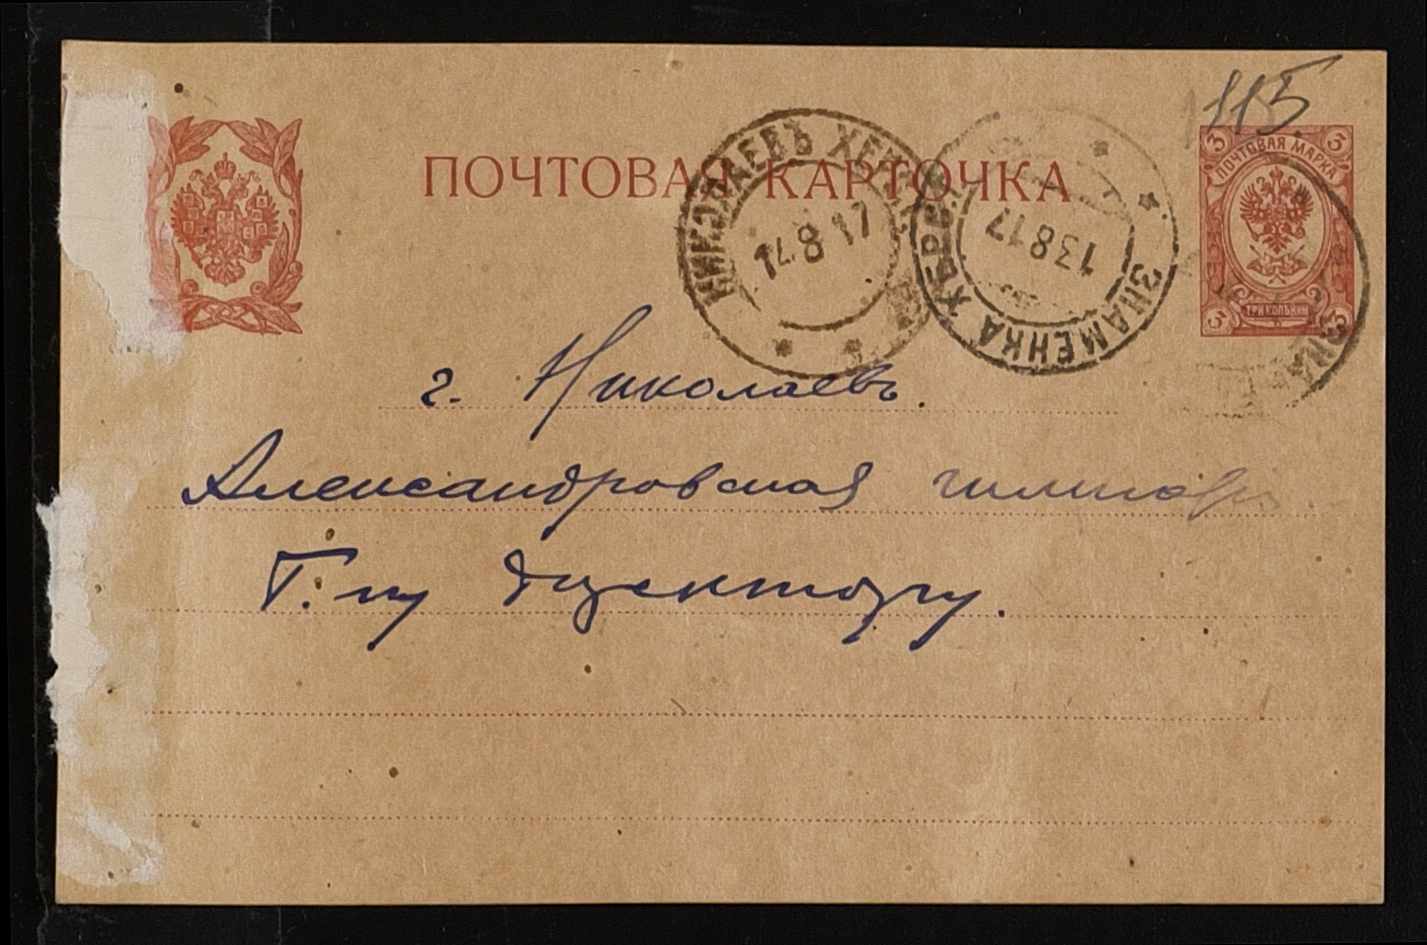 115.
ПОЧТОВАЯ КАРТОЧКА
3 3
ПОЧТОВАЯ МАРКА
ТРИ КОП
3 3
НИКОЛАЕВЪ ХЕРС.
14 8 17
ЗНАМЕНКА ХЕРС.
13 8 17
ЗНАМ
г. Николаевъ.
Александровская
Г. ну Директору.